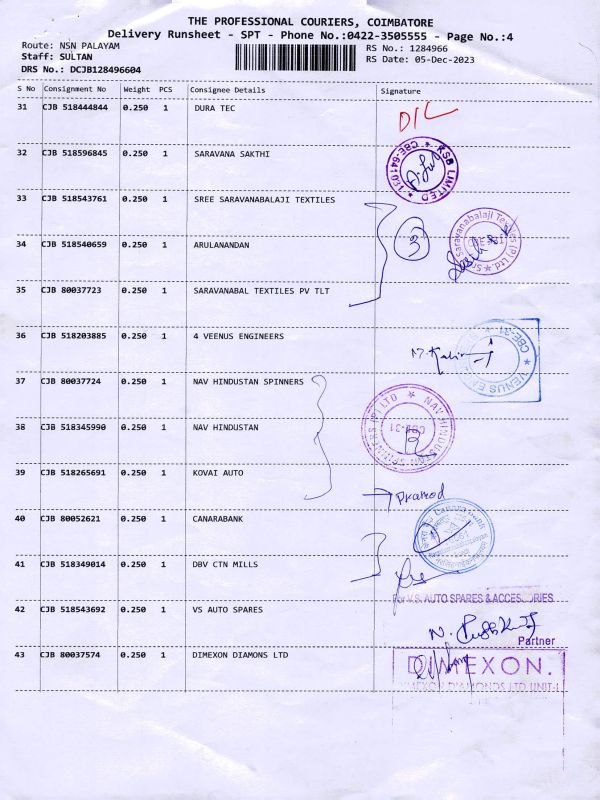 THE PROFESSIONAL COURIERS, COIMBATORE
Delivery Runsheet - SPT - Phone No.:0422-3505555 - Page No.:4
Route: NSN PALAYAM
RS No.: 1284966
Staff: SULTAN
RS Date: 05-Dec-2023
DRS No.: DCJB128496604
S No Consignment No Weight PCS Consignee Details Signature
31 CJB 518444844 0.250 1 DURA TEC
D/L
32 CJB 518596845 0.250 1 SARAVANA SAKTHI
KSB LIMITED
CBE-641031
33 CJB 518543761 0.250 1 SREE SARAVANABALAJI TEXTILES
34 CJB 518540659 0.250 1 ARULANANDAN
3
saravanabalaji Textiles (P) Ltd.
35 CJB 80037723 0.250 1 SARAVANABAL TEXTILES PV TLT
36 CJB 518203885 0.250 1 4 VEENUS ENGINEERS
CBE-31
VENUS
37 CJB 80037724 0.250 1 NAV HINDUSTAN SPINNERS
38 CJB 518345990 0.250 1 NAV HINDUSTAN
NAV HINDUSTAN SPINNERS (P) LTD
CBE-31
39 CJB 518265691 0.250 1 KOVAI AUTO
Pramod
40 CJB 80052621 0.250 1 CANARABANK
Canara bank
41 CJB 518349014 0.250 1 DBV CTN MILLS
For V.S. AUTO SPARES & ACCESSORIES
42 CJB 518543692 0.250 1 VS AUTO SPARES
Partner
43 CJB 80037574 0.250 1 DIMEXON DIAMONS LTD
DIMEXON.
DIMEXON DIAMONDS LTD UNIT-I